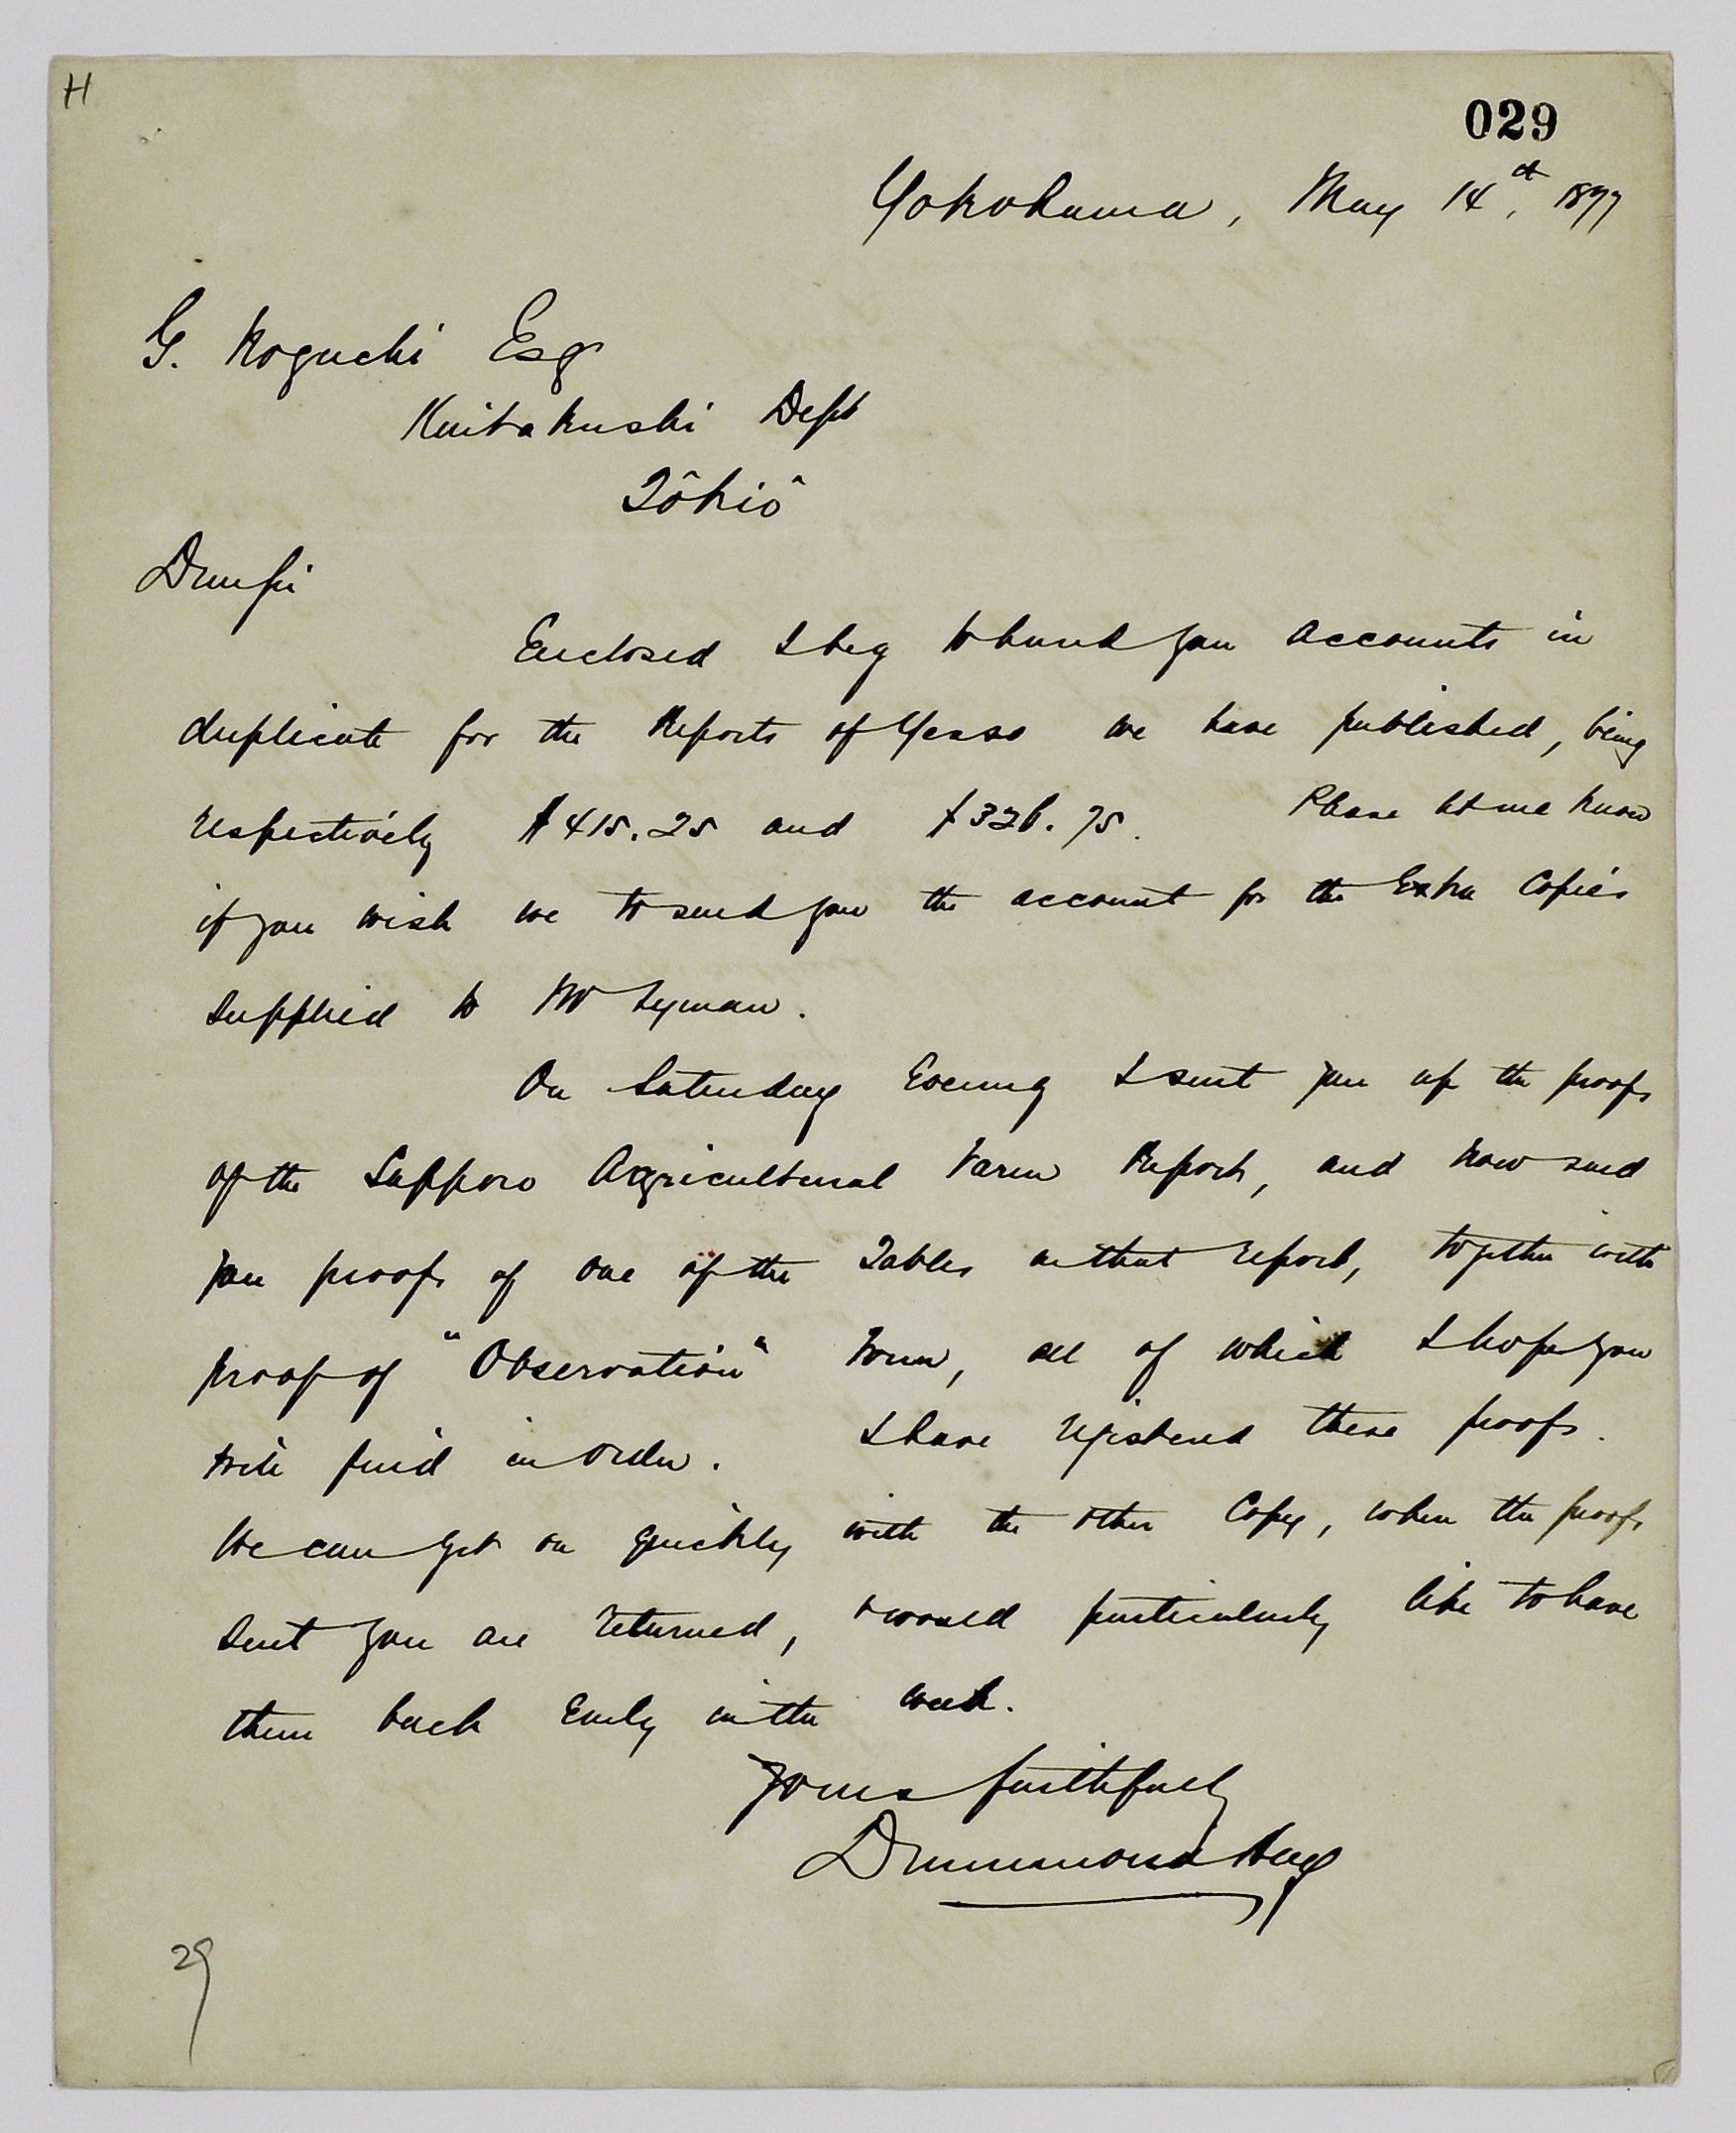 H
029
Yokohama, May 14th, 1877
G. Noguchi Esqr
Kaitakushi Dept
Tôkiô
Dear Sir
Enclosed I beg to hand you accounts in
duplicate for the Reports of Yesso we have published, being
respectively $415.25 and $326.75. Please let me know
if you wish me to send you the account for the Extra Copies
supplied to Mr Lyman.
On Saturday Evening I sent you up the proofs
of the Sapporo Agricultural Farm Report, and now send
you proofs of one of the Tables in that report, together with
proof of "Observation" Form, all of which I hope you
will find in order. I have registered these proofs.
We can get on quickly with the other Copy, when the proofs
sent you are returned, & would particularly like to have
them back Early in the week.
Yours faithfully
Drummond Hay
29